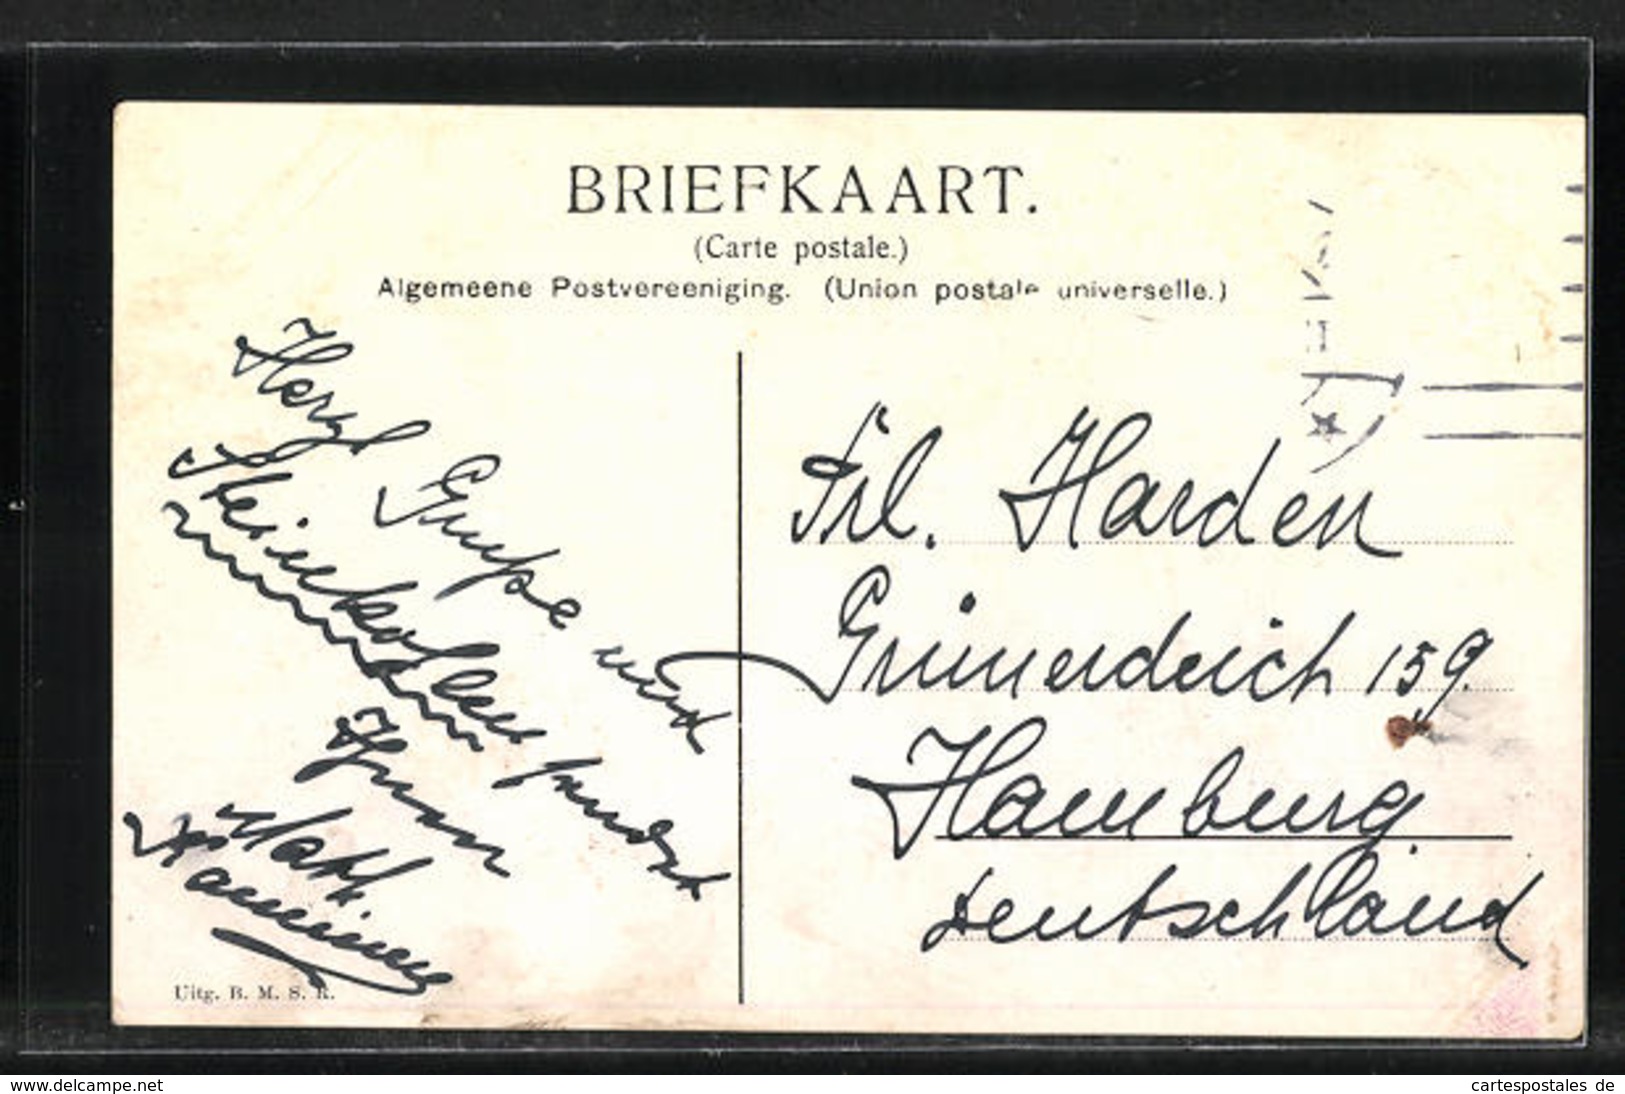 BRIEFKAART.
(Carte postale.)
Algemeene Postvereeniging. (Union postale universelle.)
Herzl
Grupe und
Steinkohlen sendet
Ihnen
Matth.
Frl. Harden
Grünerdeich 159.
Hamburg
Deutschland
Uitg. B. M. S. R.
www.delcampe.net
cartespostales de